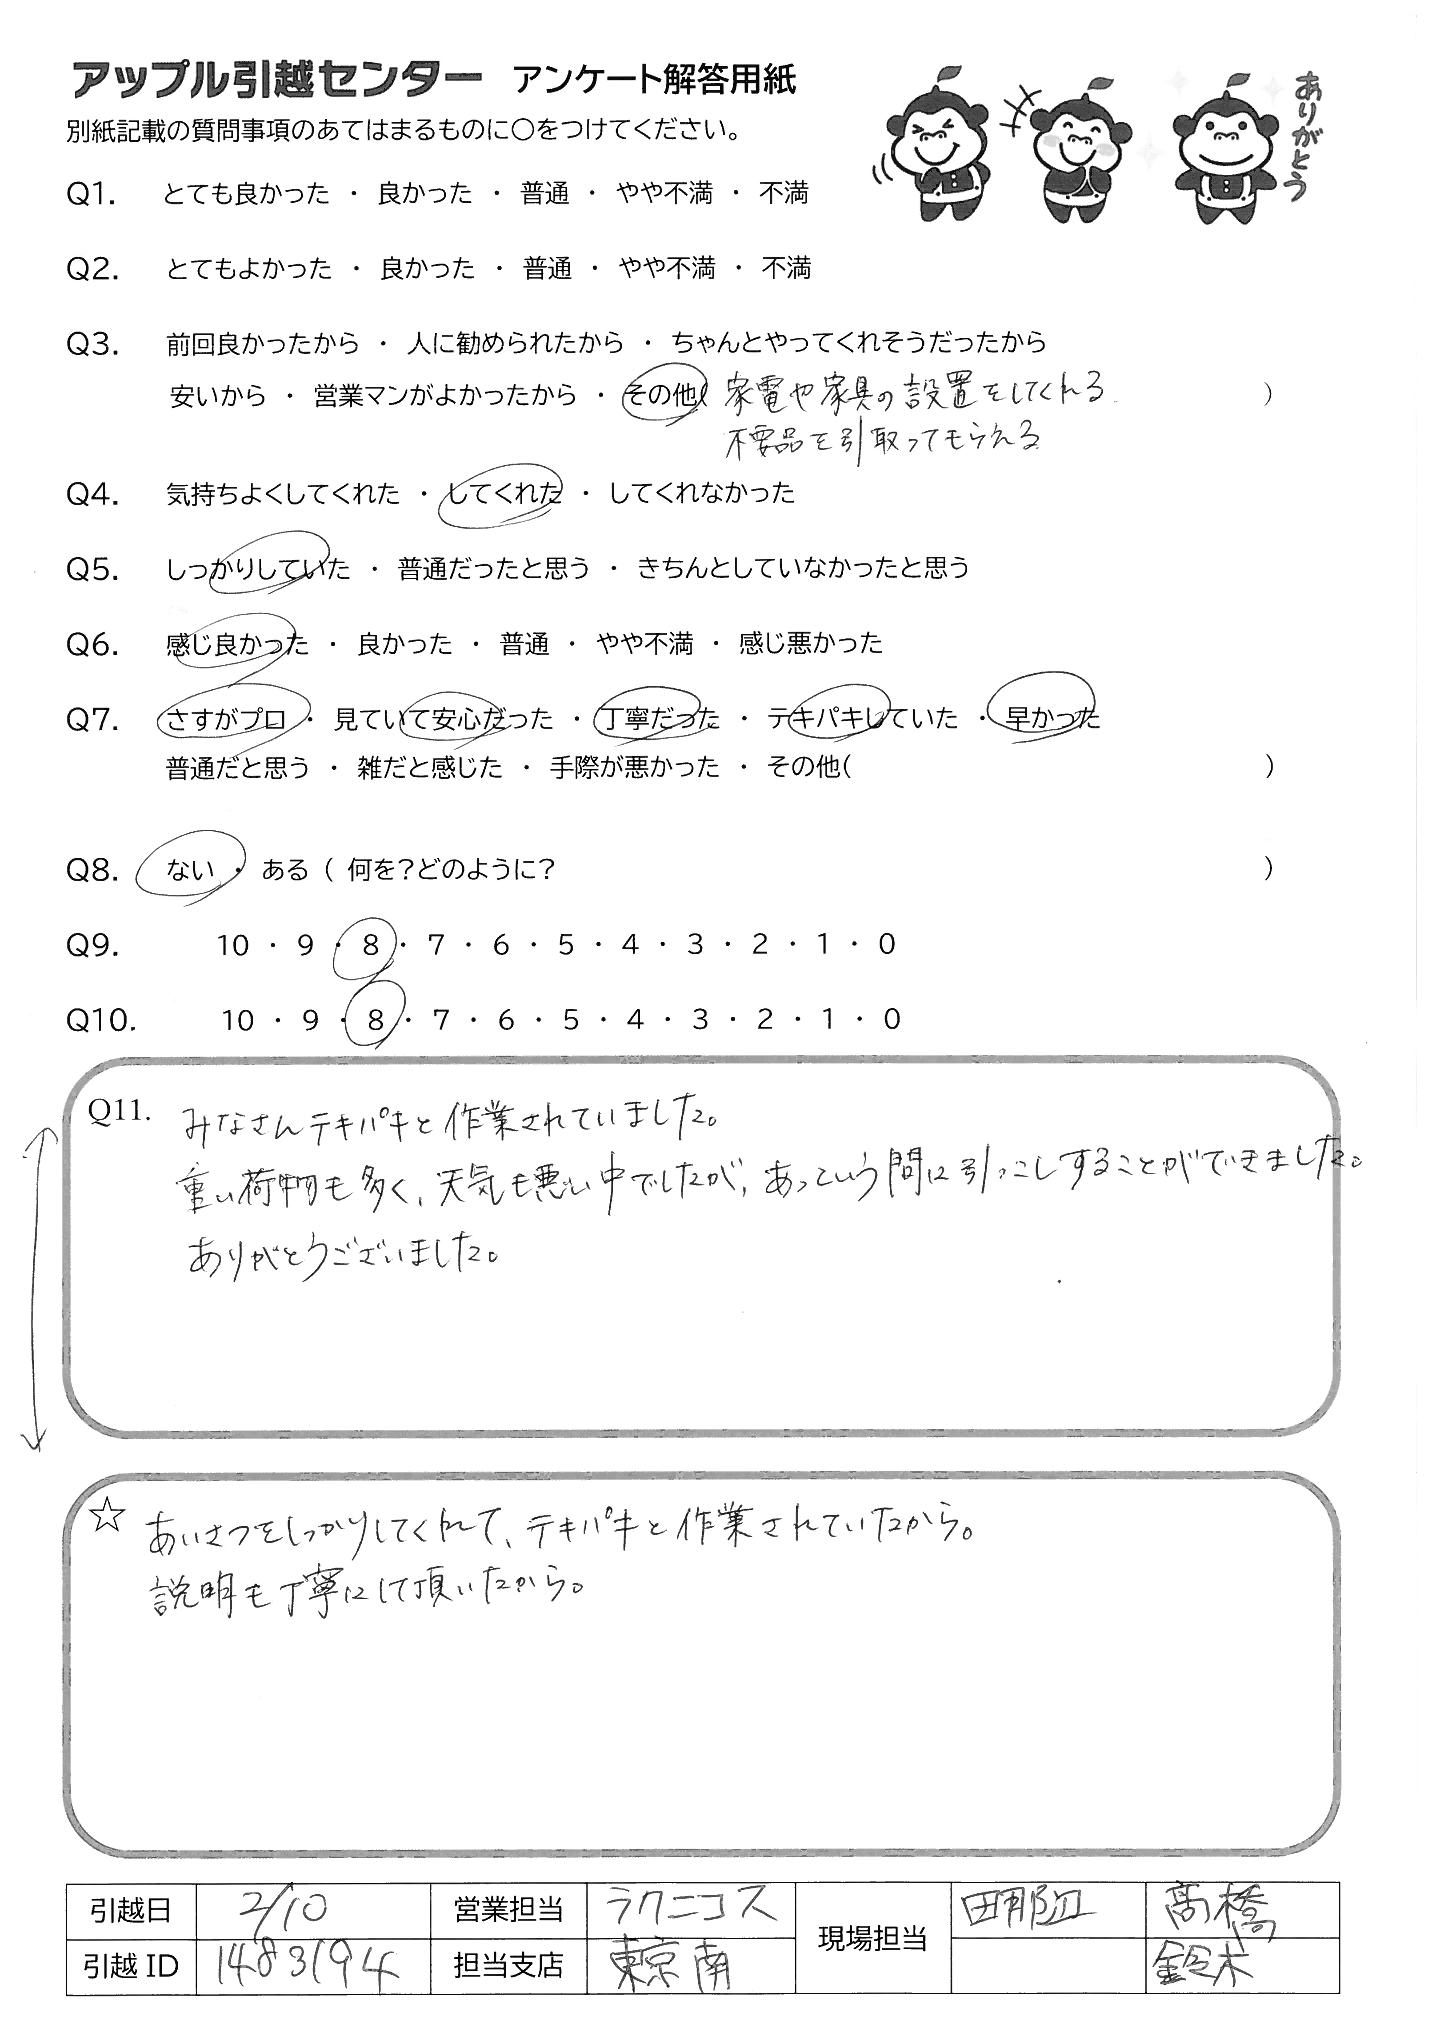 アップル引越センター アンケート解答用紙
別紙記載の質問事項のあてはまるものに○をつけてください。
ありがとう
Q1. とても良かった ・ 良かった ・ 普通 ・ やや不満 ・ 不満
Q2. とてもよかった ・ 良かった ・ 普通 ・ やや不満 ・ 不満
Q3. 前回良かったから ・ 人に勧められたから ・ ちゃんとやってくれそうだったから
安いから ・ 営業マンがよかったから ・ その他( 家電や家具の設置をしてくれる )
不要品を引取ってもらえる
Q4. 気持ちよくしてくれた ・ してくれた ・ してくれなかった
Q5. しっかりしていた ・ 普通だったと思う ・ きちんとしていなかったと思う
Q6. 感じ良かった ・ 良かった ・ 普通 ・ やや不満 ・ 感じ悪かった
Q7. さすがプロ ・ 見ていて安心だった ・ 丁寧だった ・ テキパキしていた ・ 早かった
普通だと思う ・ 雑だと感じた ・ 手際が悪かった ・ その他( )
Q8. ない ・ ある ( 何を?どのように? )
Q9. 10 ・ 9 ・ 8 ・ 7 ・ 6 ・ 5 ・ 4 ・ 3 ・ 2 ・ 1 ・ 0
Q10. 10 ・ 9 ・ 8 ・ 7 ・ 6 ・ 5 ・ 4 ・ 3 ・ 2 ・ 1 ・ 0
Q11. みなさんテキパキと作業されていました。
重い荷物も多く、天気も悪い中でしたが、あっという間に引っこしすることができました。
ありがとうございました。
☆ あいさつをしっかりしてくれて、テキパキと作業されていたから。
説明も丁寧にして頂いたから。
引越日 2/10 営業担当 ラクニコス 現場担当 髙橋
引越ID 1483194 担当支店 東京南 鈴木